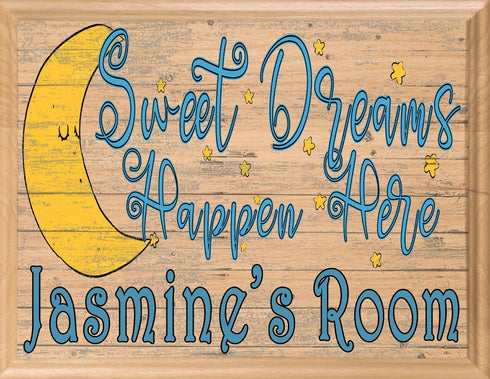 Sweet Dreams
Happen Here
Jasmine's Room